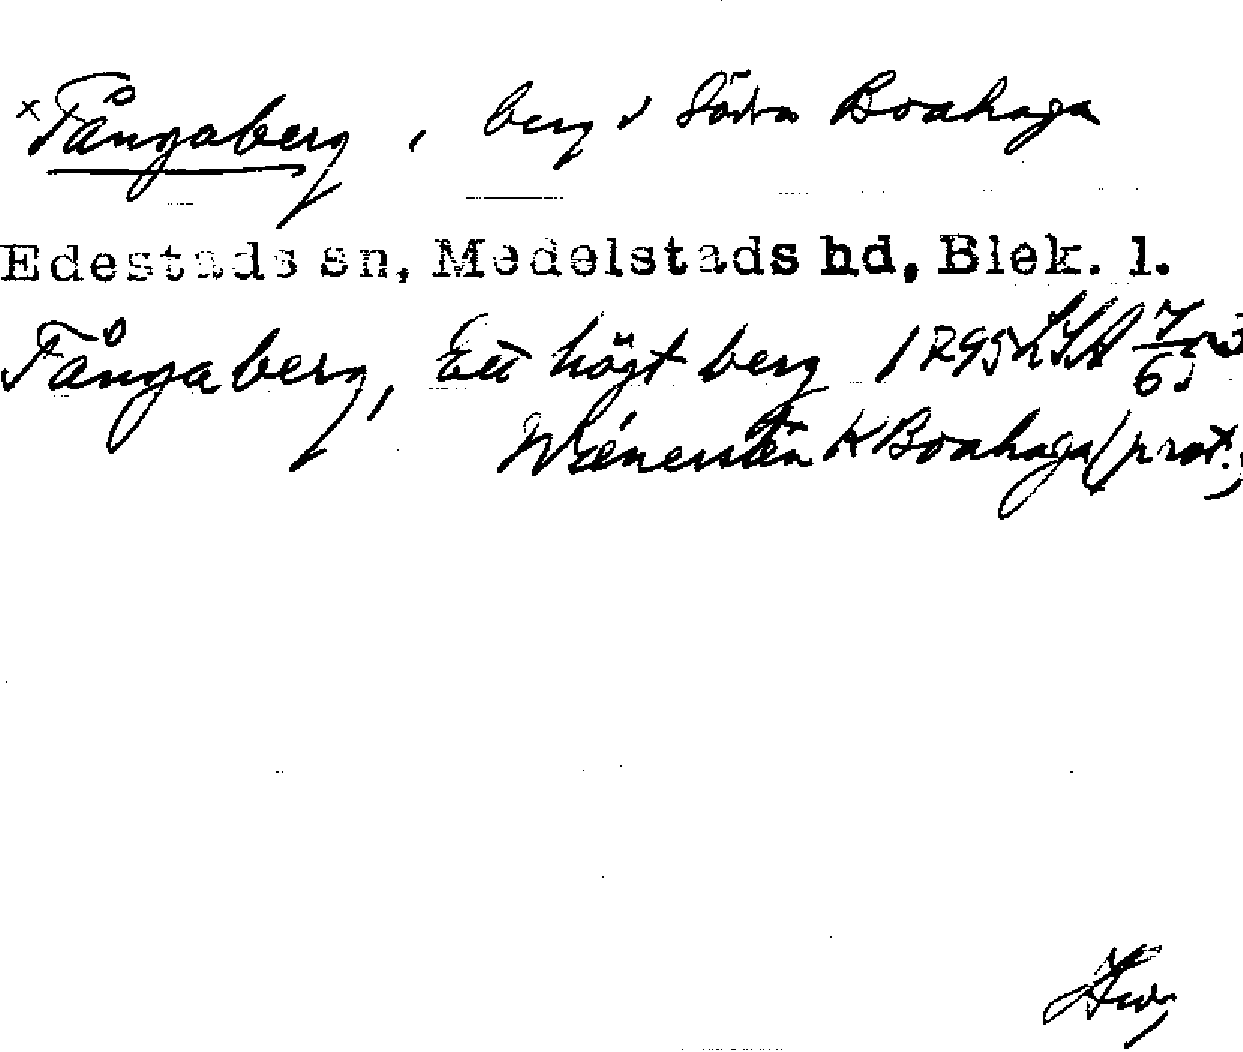 × Tångaberg, berg i Södra Boahaga
Edestads sn, Medelstads hd, Blek. l.
Tångaberg, Ett högt berg 1795 LSA 7/65
K Boahaga (prot.)